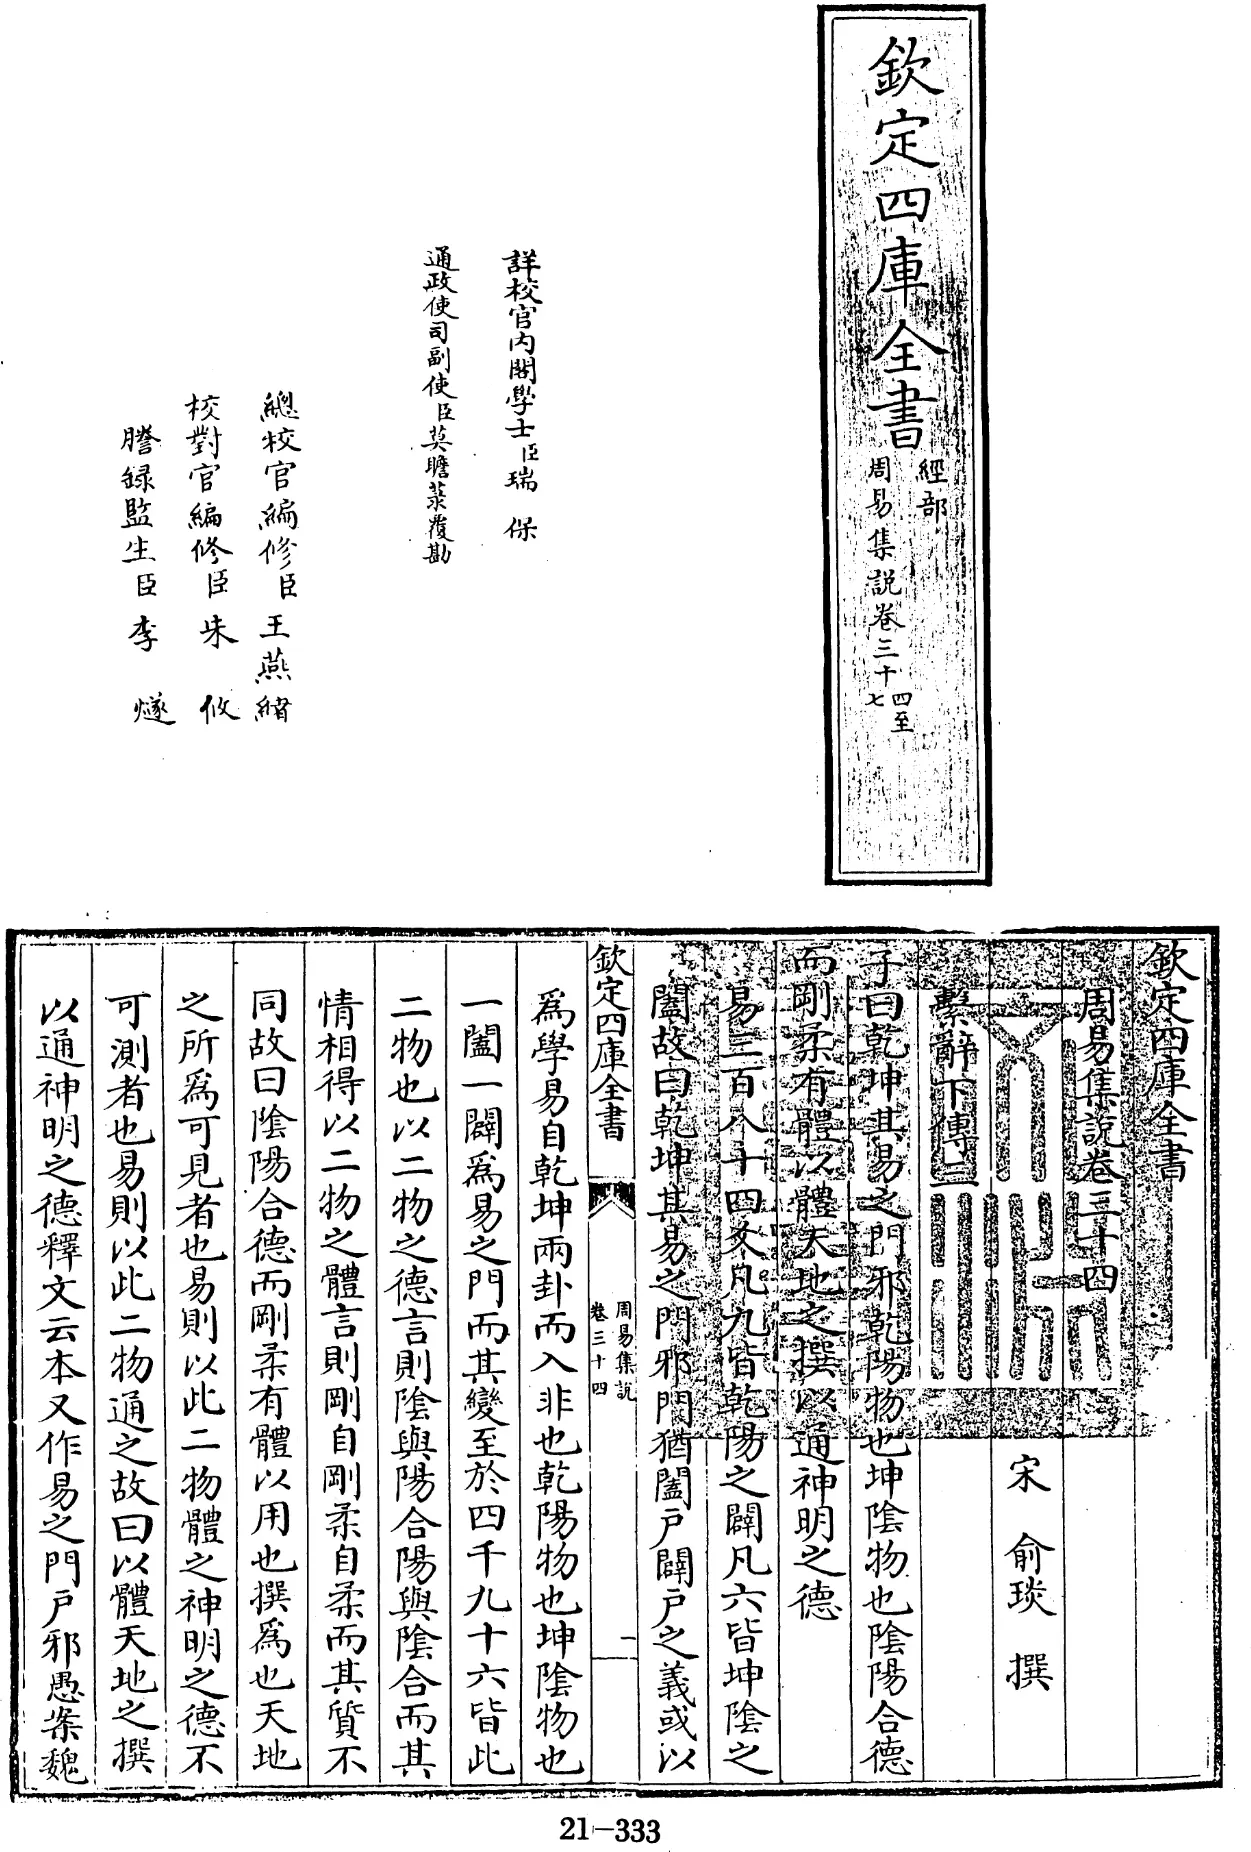 欽定四庫全書
經部
周易集説卷三十四至七
詳校官内閣學士臣瑞保
通政使司副使臣莫瞻菉覆勘
總校官編修臣王燕緒
校對官編修臣朱攸
謄録監生臣李燧
欽定四庫全書
周易集説卷三十四
宋俞琰撰
繫辭下傳二
子曰乾坤其易之門邪乾陽物也坤陰物也陰陽合德
而剛柔有體以體天地之撰以通神明之德
易三百八十四爻凡九皆乾陽之闢凡六皆坤陰之
闔故曰乾坤其易之門邪門猶闔戸闢戸之義或以
欽定四庫全書
周易集説
卷三十四
一
為學易自乾坤兩卦而入非也乾陽物也坤陰物也
一闔一闢為易之門而其變至於四千九十六皆此
二物也以二物之德言則陰與陽合陽與陰合而其
情相得以二物之體言則剛自剛柔自柔而其質不
同故曰陰陽合德而剛柔有體以用也撰為也天地
之所為可見者也易則以此二物體之神明之德不
可測者也易則以此二物通之故曰以體天地之撰
以通神明之德釋文云本又作易之門戸邪愚案魏
21-333